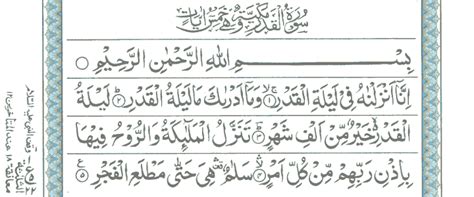 سُوْرَةُ الْقَدْرِ مَكِّيَّةٌ وَّهِيَ خَمْسُ اٰيَاتٍ
بِسْمِ اللهِ الرَّحْمٰنِ الرَّحِيْمِ ○
اِنَّاۤ اَنْزَلْنٰهُ فِيْ لَيْلَةِ الْقَدْرِ ۝۱ وَمَاۤ اَدْرٰىكَ مَا لَيْلَةُ الْقَدْرِ ۝۲ لَيْلَةُ
الْقَدْرِ خَيْرٌ مِّنْ اَلْفِ شَهْرٍ ۝۳ تَنَزَّلُ الْمَلٰٓئِكَةُ وَالرُّوْحُ فِيْهَا
بِاِذْنِ رَبِّهِمْ مِّنْ كُلِّ اَمْرٍ ۝۴ سَلٰمٌ هِيَ حَتّٰى مَطْلَعِ الْفَجْرِ ۝۵ ع